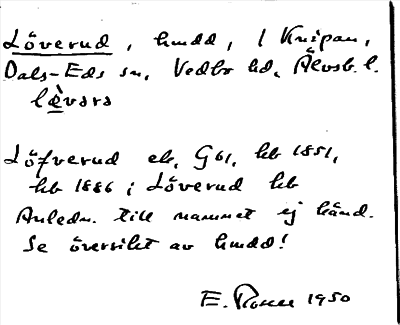 Löverud, hmdd, i Knipan,
Dals-Eds sn, Vedbo hd, Älvsb. l.
lø̀vara
Löfverud ek, G61, hb 1851,
hb 1886; Löverud hb
Anledn. till namnet ej känd.
Se översikt av hmdd!
E. 1950